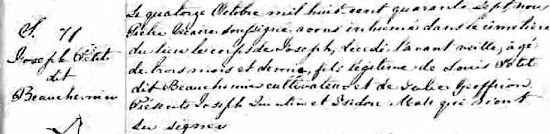 S. 71
Joseph Petit
dit
Beauchemin
Le quatorze Octobre mil huit cent quarante Sept, nous
Prêtre Vicaire, soussigné, avons inhumé dans le cimetière
du lieu le corps de Joseph, décédé l'avant veille, âgé
de trois mois et demi, fils légitime de Louis Petit
dit Beauchemin cultivateur et de Julie Geoffrion
Présents Joseph et Isidore qui n'ont
su signer